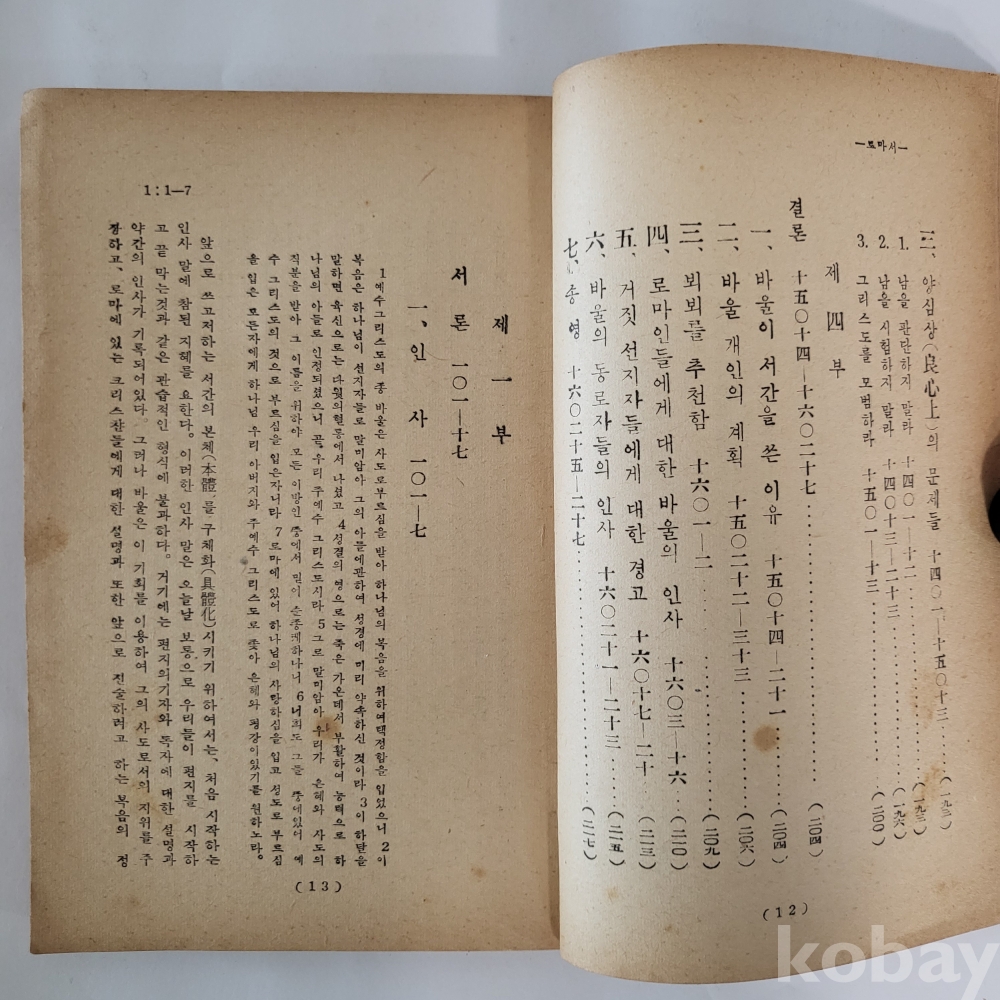 —로마서—
三、양심상(良心上)의 문제들 十四〇一—十五〇十三……(一九三)
1. 남을 판단하지 말라 十四〇一—十二……(一九三)
2. 남을 시험하지 말라 十四〇十三—二十三……(一九六)
3. 그리스도를 모범하라 十五〇一—十三……(二〇〇)
제 四 부
결론 十五〇十四—十六〇二十七……(二〇四)
一、바울이 서간을 쓴 이유 十五〇十四—二十一……(二〇四)
二、바울 개인의 계획 十五〇二十二—三十三……(二〇六)
三、뵈뵈를 추천함 十六〇一—二……(二〇九)
四、로마인들에게 대한 바울의 인사 十六〇三—十六……(二一〇)
五、거짓 선지자들에게 대한 경고 十六〇十七—二十……(二一三)
六、바울의 동로자들의 인사 十六〇二十一—二十三……(二一五)
七、송영 十六〇二十五—二十七……(二一七)
(12)
1:1—7
제 一 부
서 론 一〇一—十七
一、인 사 一〇一—七
1 예수그리스도의 종 바울은 사도로부르심을 받아 하나님의 복음을 위하여택정함을 입었으니 2 이
복음은 하나님이 선지자들로 말미암아 그의 아들에관하여 성경에 미리 약속하신 것이라 3 이 아들을
말하면 육신으로는 다윗의혈통에서 나셨고 4 성결의 영으로는 죽은 가운데서 부활하여 능력으로 하
나님의 아들로 인정되셨으니 곧 우리 주예수 그리스도시라 5 그로 말미암아 우리가 은혜와 사도의
직분을 받아 그 이름을 위하야 모든 이방인 중에서 믿어 순종케하나니 6 너희도 그들 중에있어 예
수 그리스도의 것으로 부르심을 입은자니라 7 로마에 있어 하나님의 사랑하심을 입고 성도로 부르심
을 입은 모든자에게 하나님 우리 아버지와 주예수 그리스도로 좇아 은혜와 평강이있기를 원하노라。
앞으로 쓰고저하는 서간의 본체(本體)를 구체화(具體化)시키기 위하여서는、처음 시작하는
인사 말에 참된 지혜를 요한다。이러한 인사 말은 오늘날 보통으로 우리들이 편지를 시작하
고 끝 막는것과 같은 관습적인 형식에 불과하다。거기에는 편지의기자와 독자에 대한 설명과
약간의 인사가 기록되어있다。그러나 바울은 이 기회를 이용하여 그의 사도로서의 지위를 주
장하고、로마에 있는 크리스챤들에게 대한 설명과 또한 앞으로 진술하려고 하는 복음의 정
(13)
kobay